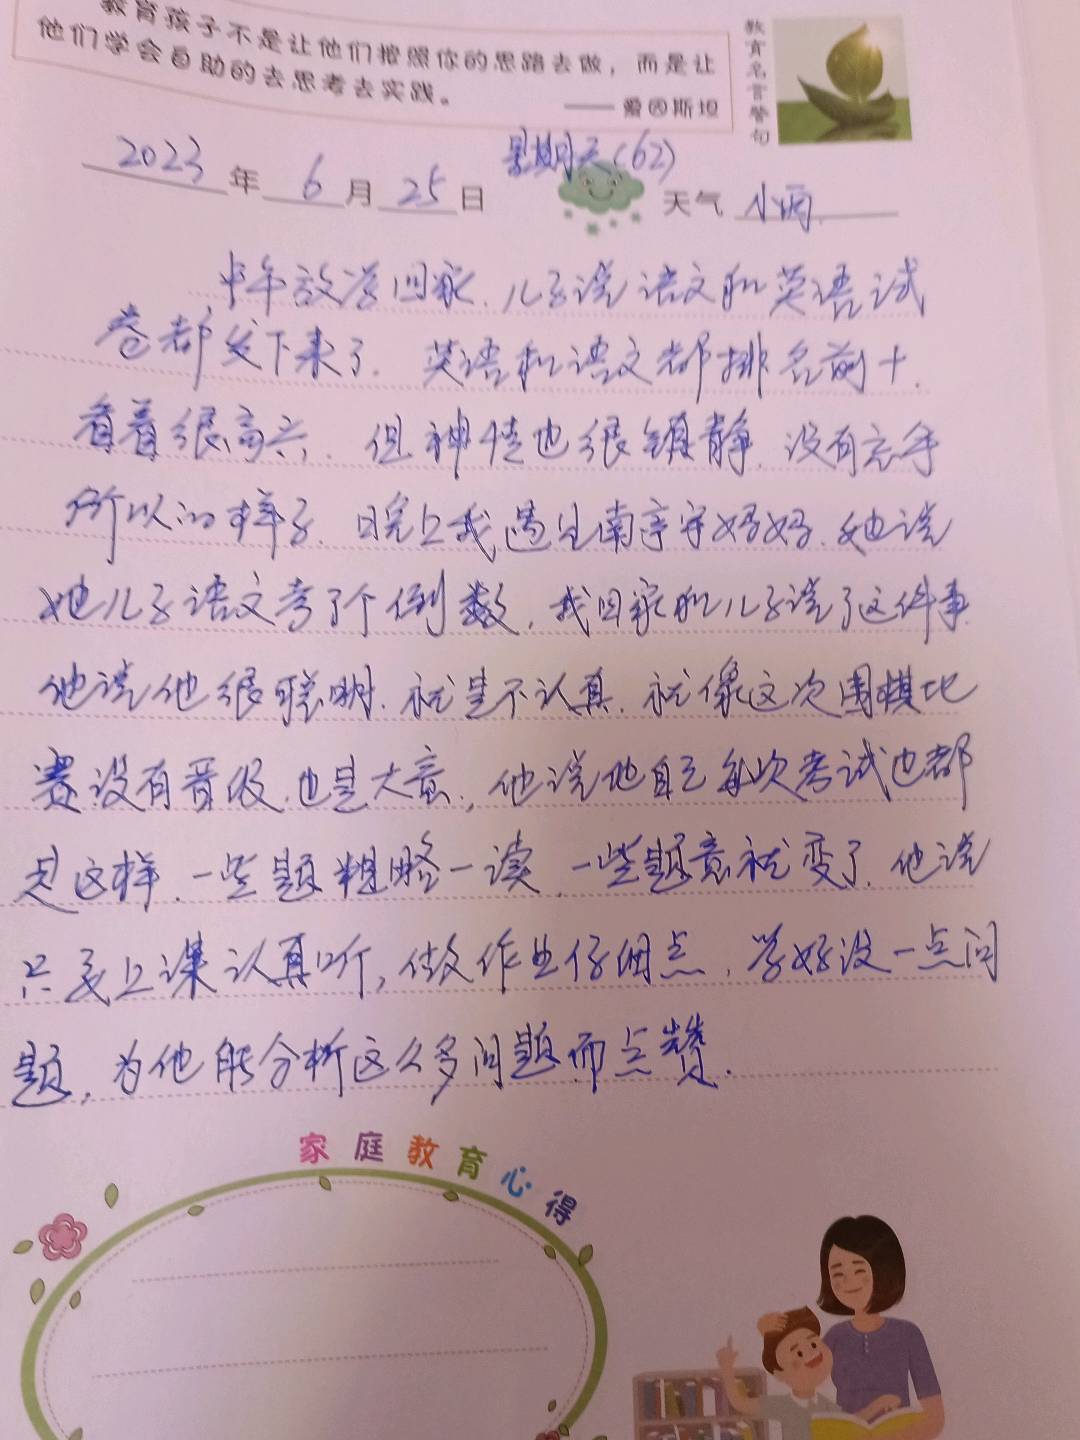 教育孩子不是让他们按照你的思路去做，而是让
他们学会自助的去思考去实践。
—— 爱因斯坦
教育名言警句
2023年 6月 25日 星期天(62) 天气 小雨.
中午放学回家.儿子说语文和英语试
卷都发下来了.英语和语文都排名前十.
看着很高兴.但神情也很镇静.没有忘乎
所以的样子.晚上我遇见南亭宇妈妈.她说
她儿子语文考了个倒数,我回家和儿子说了这件事
他说他很聪明.就是不认真.就像这次围棋比
赛没有晋级.也是大意.,他说他自己每次考试也都
是这样.一些题粗略一读.一些题意就变了.他说
只要上课认真听,做作业仔细点.学好没一点问
题,为他能分析这么多问题而点赞.
家庭教育心得